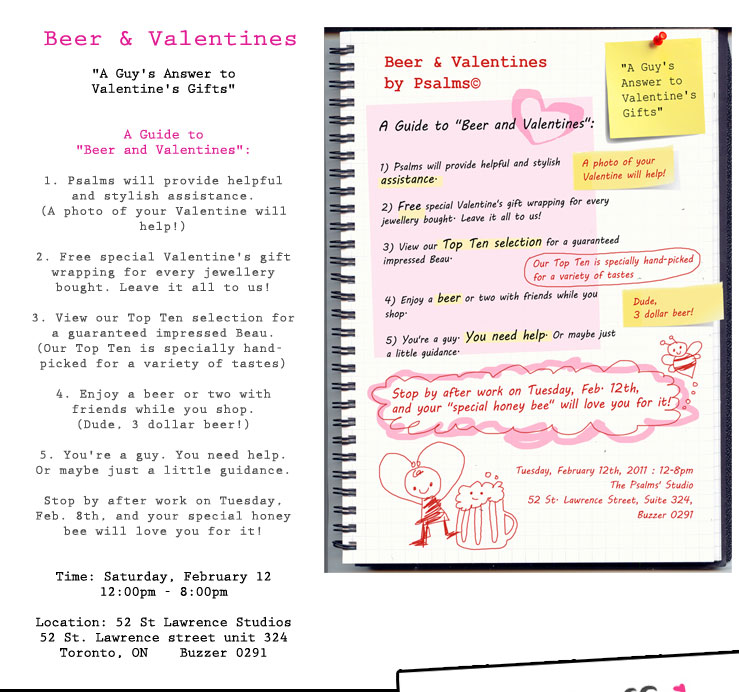 Beer & Valentines
"A Guy's Answer to
Valentine's Gifts"
A Guide to
"Beer and Valentines":
1. Psalms will provide helpful
and stylish assistance.
(A photo of your Valentine will
help!)
2. Free special Valentine's gift
wrapping for every jewellery
bought. Leave it all to us!
3. View our Top Ten selection for
a guaranteed impressed Beau.
(Our Top Ten is specially hand-
picked for a variety of tastes)
4. Enjoy a beer or two with
friends while you shop.
(Dude, 3 dollar beer!)
5. You're a guy. You need help.
Or maybe just a little guidance.
Stop by after work on Tuesday,
Feb. 8th, and your special honey
bee will love you for it!
Time: Saturday, February 12
12:00pm - 8:00pm
Location: 52 St Lawrence Studios
52 St. Lawrence street unit 324
Toronto, ON Buzzer 0291
Beer & Valentines
by Psalms©
"A Guy's
Answer to
Valentine's
Gifts"
A Guide to "Beer and Valentines":
1) Psalms will provide helpful and stylish
assistance.
A photo of your
Valentine will help!
2) Free special Valentine's gift wrapping for every
jewellery bought. Leave it all to us!
3) View our Top Ten selection for a guaranteed
impressed Beau.
Our Top Ten is specially hand-picked
for a variety of tastes
4) Enjoy a beer or two with friends while you
shop.
Dude,
3 dollar beer!
5) You're a guy. You need help. Or maybe just
a little guidance.
Stop by after work on Tuesday, Feb. 12th,
and your "special honey bee" will love you for it!
Tuesday, February 12th, 2011 : 12-8pm
The Psalms' Studio
52 St. Lawrence Street, Suite 324,
Buzzer 0291